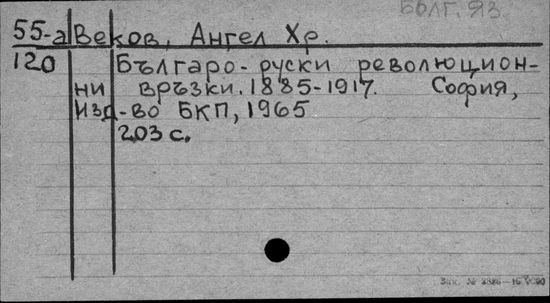 Бълг. яз.
55-а Веков, Ангел Хр.
120 Българо-руски революцион-
ни връзки. 1885-1917. София,
Изд-во БКП, 1965
203 с.
Зак. №